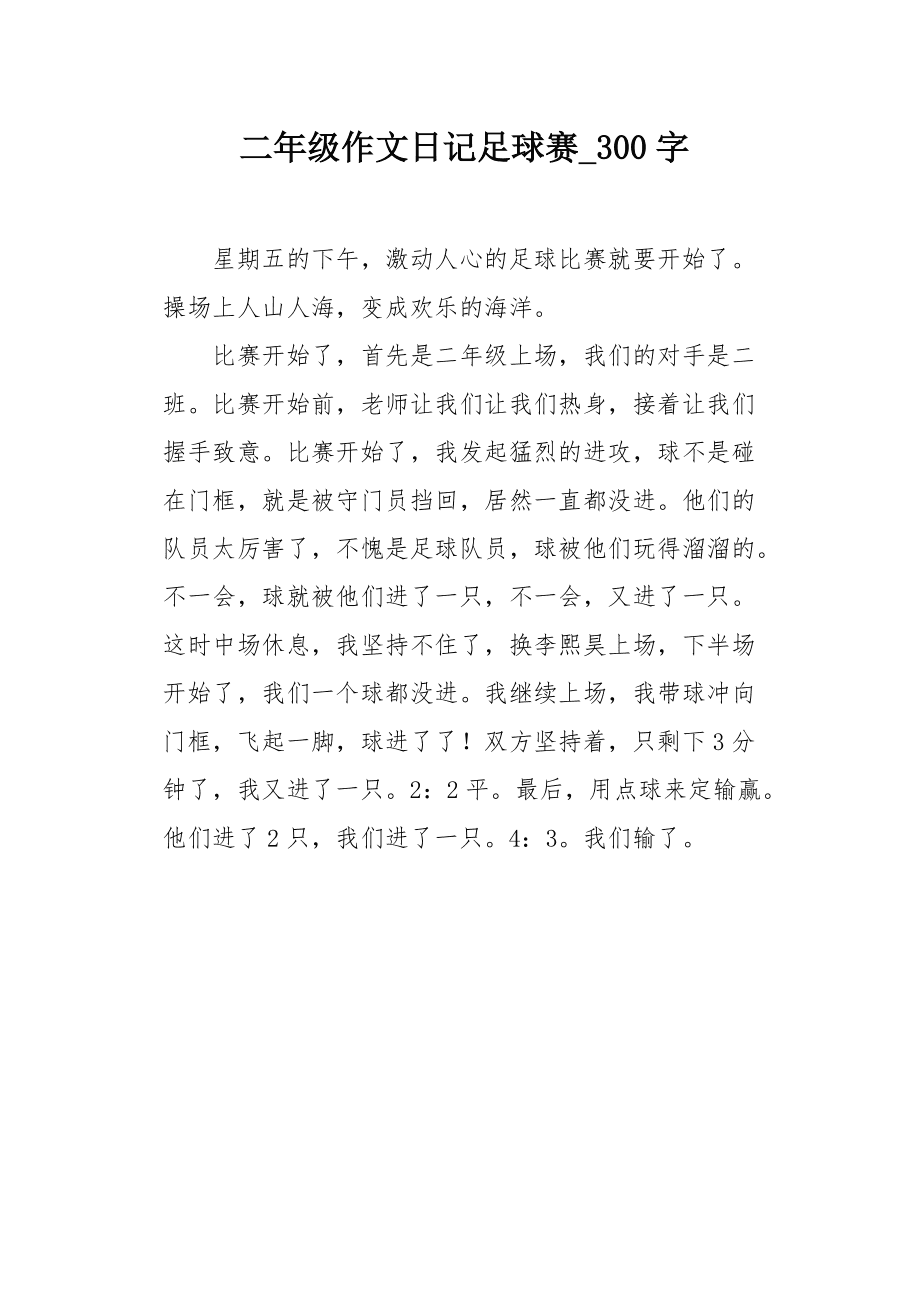 二年级作文日记足球赛_300 字
星期五的下午，激动人心的足球比赛就要开始了。
操场上人山人海，变成欢乐的海洋。
比赛开始了，首先是二年级上场，我们的对手是二
班。比赛开始前，老师让我们让我们热身，接着让我们
握手致意。比赛开始了，我发起猛烈的进攻，球不是碰
在门框，就是被守门员挡回，居然一直都没进。他们的
队员太厉害了，不愧是足球队员，球被他们玩得溜溜的。
不一会，球就被他们进了一只，不一会，又进了一只。
这时中场休息，我坚持不住了，换李熙昊上场，下半场
开始了，我们一个球都没进。我继续上场，我带球冲向
门框，飞起一脚，球进了了！双方坚持着，只剩下 3 分
钟了，我又进了一只。2：2 平。最后，用点球来定输赢。
他们进了 2 只，我们进了一只。4：3。我们输了。